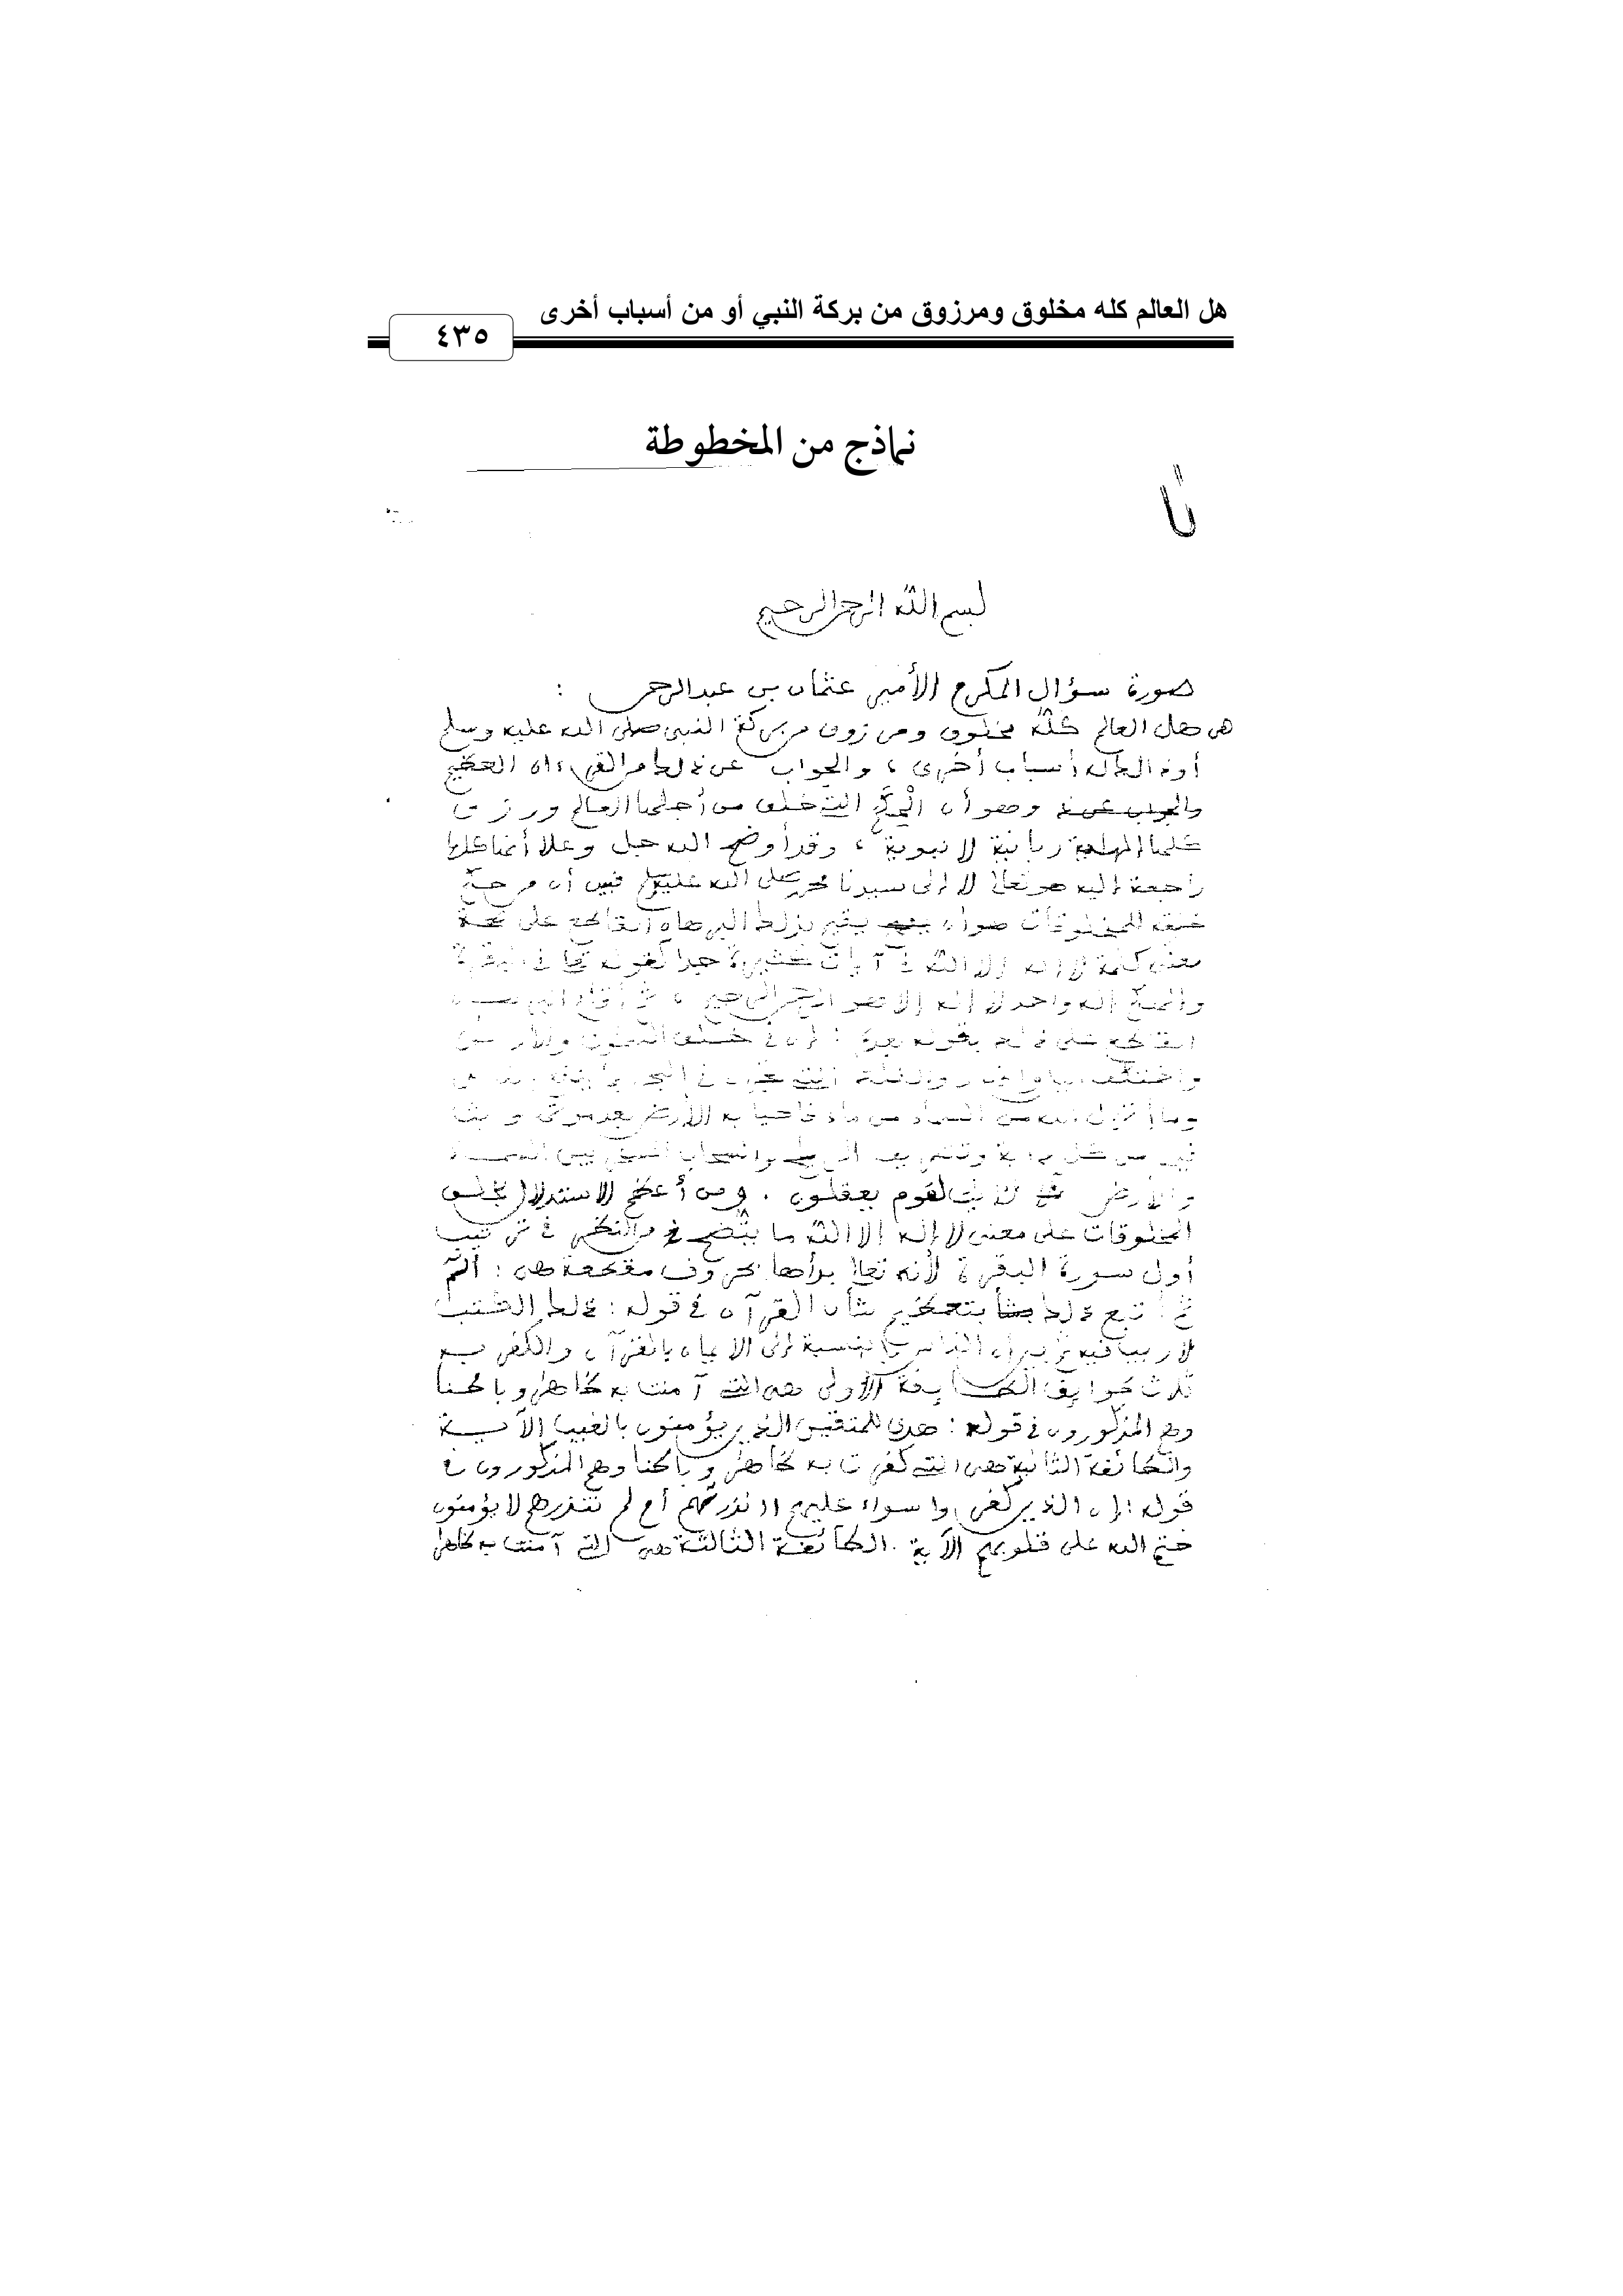 هل العالم كله مخلوق ومرزوق من بركة النبي أو من أسباب أخرى
٤٣٥
نماذج من المخطوطة
بسم الله الرحمن الرحيم
صورة سؤال المكرم الأمير عثمان بن عبدالرحمن :
هى هل العالم كلّه مخلوق ومرزوق من بركة النبي صلى الله عليه وسلم
أو أسباب أخرى ، والجواب عن ذلك القرءان العظيم
وهو أن التي خلق من أجلها العالم ورزق
كلها ربانية لا نبوية ، وقد أوضح الله جل وعلا أنها كلها
راجعة إليه هو تعالى لا إلى سيدنا محمد صلى الله عليه وسلم فبين أن من
خلق المخلوقات هو أن يقيم بذلك البرهان القاطع على صحة
معنى كلمة لا إله إلا الله في آيات كثيرة جدا كقوله تعالى في البقرة
وإلهكم إله واحد لا إله إلا هو الرحمن الرحيم ، ثم أقام البرهان
القاطع على ذلك بقوله بعده : إن في خلق السموت والأرض
واختلف اليل والنهار والفلك التي تجرى في البحر بما ينفع الناس
وما أنزل الله من السماء من ماء فأحيا به الأرض بعد موتها وبث
فيها من كل دابة وتصريف الريح والسحاب المسخر بين السماء
والأرض لأيت لقوم يعقلون . ومن أعظم الاستدلال بخلق
المخلوقات على معنى لا إله إلا الله ما يتضح في النظر في ترتيب
أول سورة البقرة لأنه تعالى بدأها بحروف مقطعة هى : الم
ثم أتبع ذلك بتعظيم شأن القرآن في قوله : ذلك الكتب
لا ريب فيه ثم بين أن الناس بالنسبة إلى الإيمان بالقرآن والكفر به
ثلاث طوايف الطايفة الأولى هى التي آمنت به ظاهرا وباطنا
وهم المذكورون في قوله : هدى للمتقين الذين يؤمنون بالغيب الآية
والطائفة الثانية هى التي كفرت به ظاهرا وباطنا وهم المذكورون في
قوله : إن الذين كفروا سواء عليهم أأنذرتهم أم لم تنذرهم لا يؤمنون
ختم الله على قلوبهم الآية . الطائفة الثالثة هى التي آمنت به ظاهرا